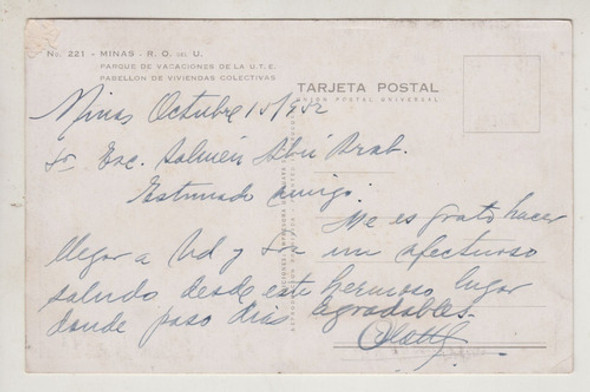 No. 221 - MINAS - R. O. DEL U.
PARQUE DE VACACIONES DE LA U.T.E.
PABELLON DE VIVIENDAS COLECTIVAS
TARJETA POSTAL
UNION POSTAL UNIVERSAL
Minas Octubre 15/952
Sr Esc. Salmén Abú Arab.
Estimado amigo:
Me es grato hacer
llegar a Ud y Sra un afectuoso
saludo desde este hermoso lugar
donde paso días agradables.